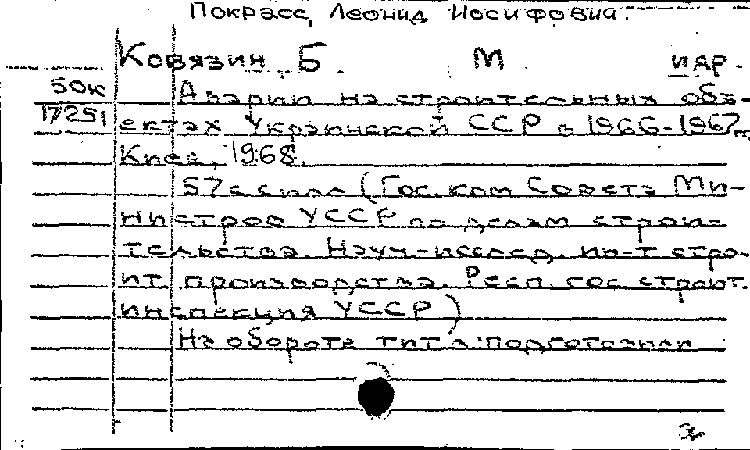 Покрасс, Леонид Иосифовиа.
Ковязин Б. М и др.
50к Аварии на строительных объ-
17251 ектах Украинской ССР в 1966-1967гг,
Киев, 1968.
57с с илл (Гос. ком Совета Ми-
нистров УССР по делам строи-
тельства. Науч-исслед. ин-т стро-
ит производства. Респ. гос строит.
инспекция УССР)
На обороте тит л: подготовили